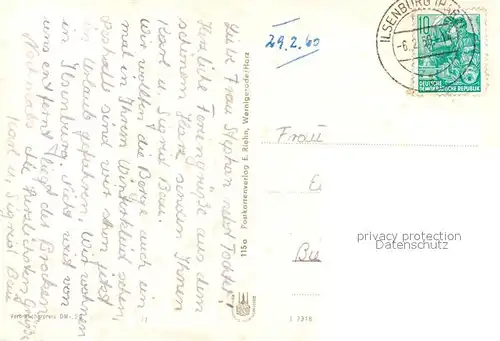 Liebe Frau Stephan nebst Tochter!
Herzliche Feriengrüße aus dem
schönem Harz senden Ihnen
Karl u. Sigrid Bau.
Wir wollten die Berge auch ein
mal in Ihrem Winterkleid sehen,
deshalb sind wir schon jetzt
in Urlaub gefahren. Wir wohnen
in Ilsenburg. Nicht weit von
uns entfernt liegt der Brocken.
Nochmals die herzlichsten Grüße
Karl u. Sigrid Bau
115a Postkartenverlag E. Riehn, Wernigerode/Harz
29.2.60
ILSENBURG (HARZ)
10
DEUTSCHE
DEMOKRATISCHE REPUBLIK
Frau
E
Bü
privacy protection
Datenschutz